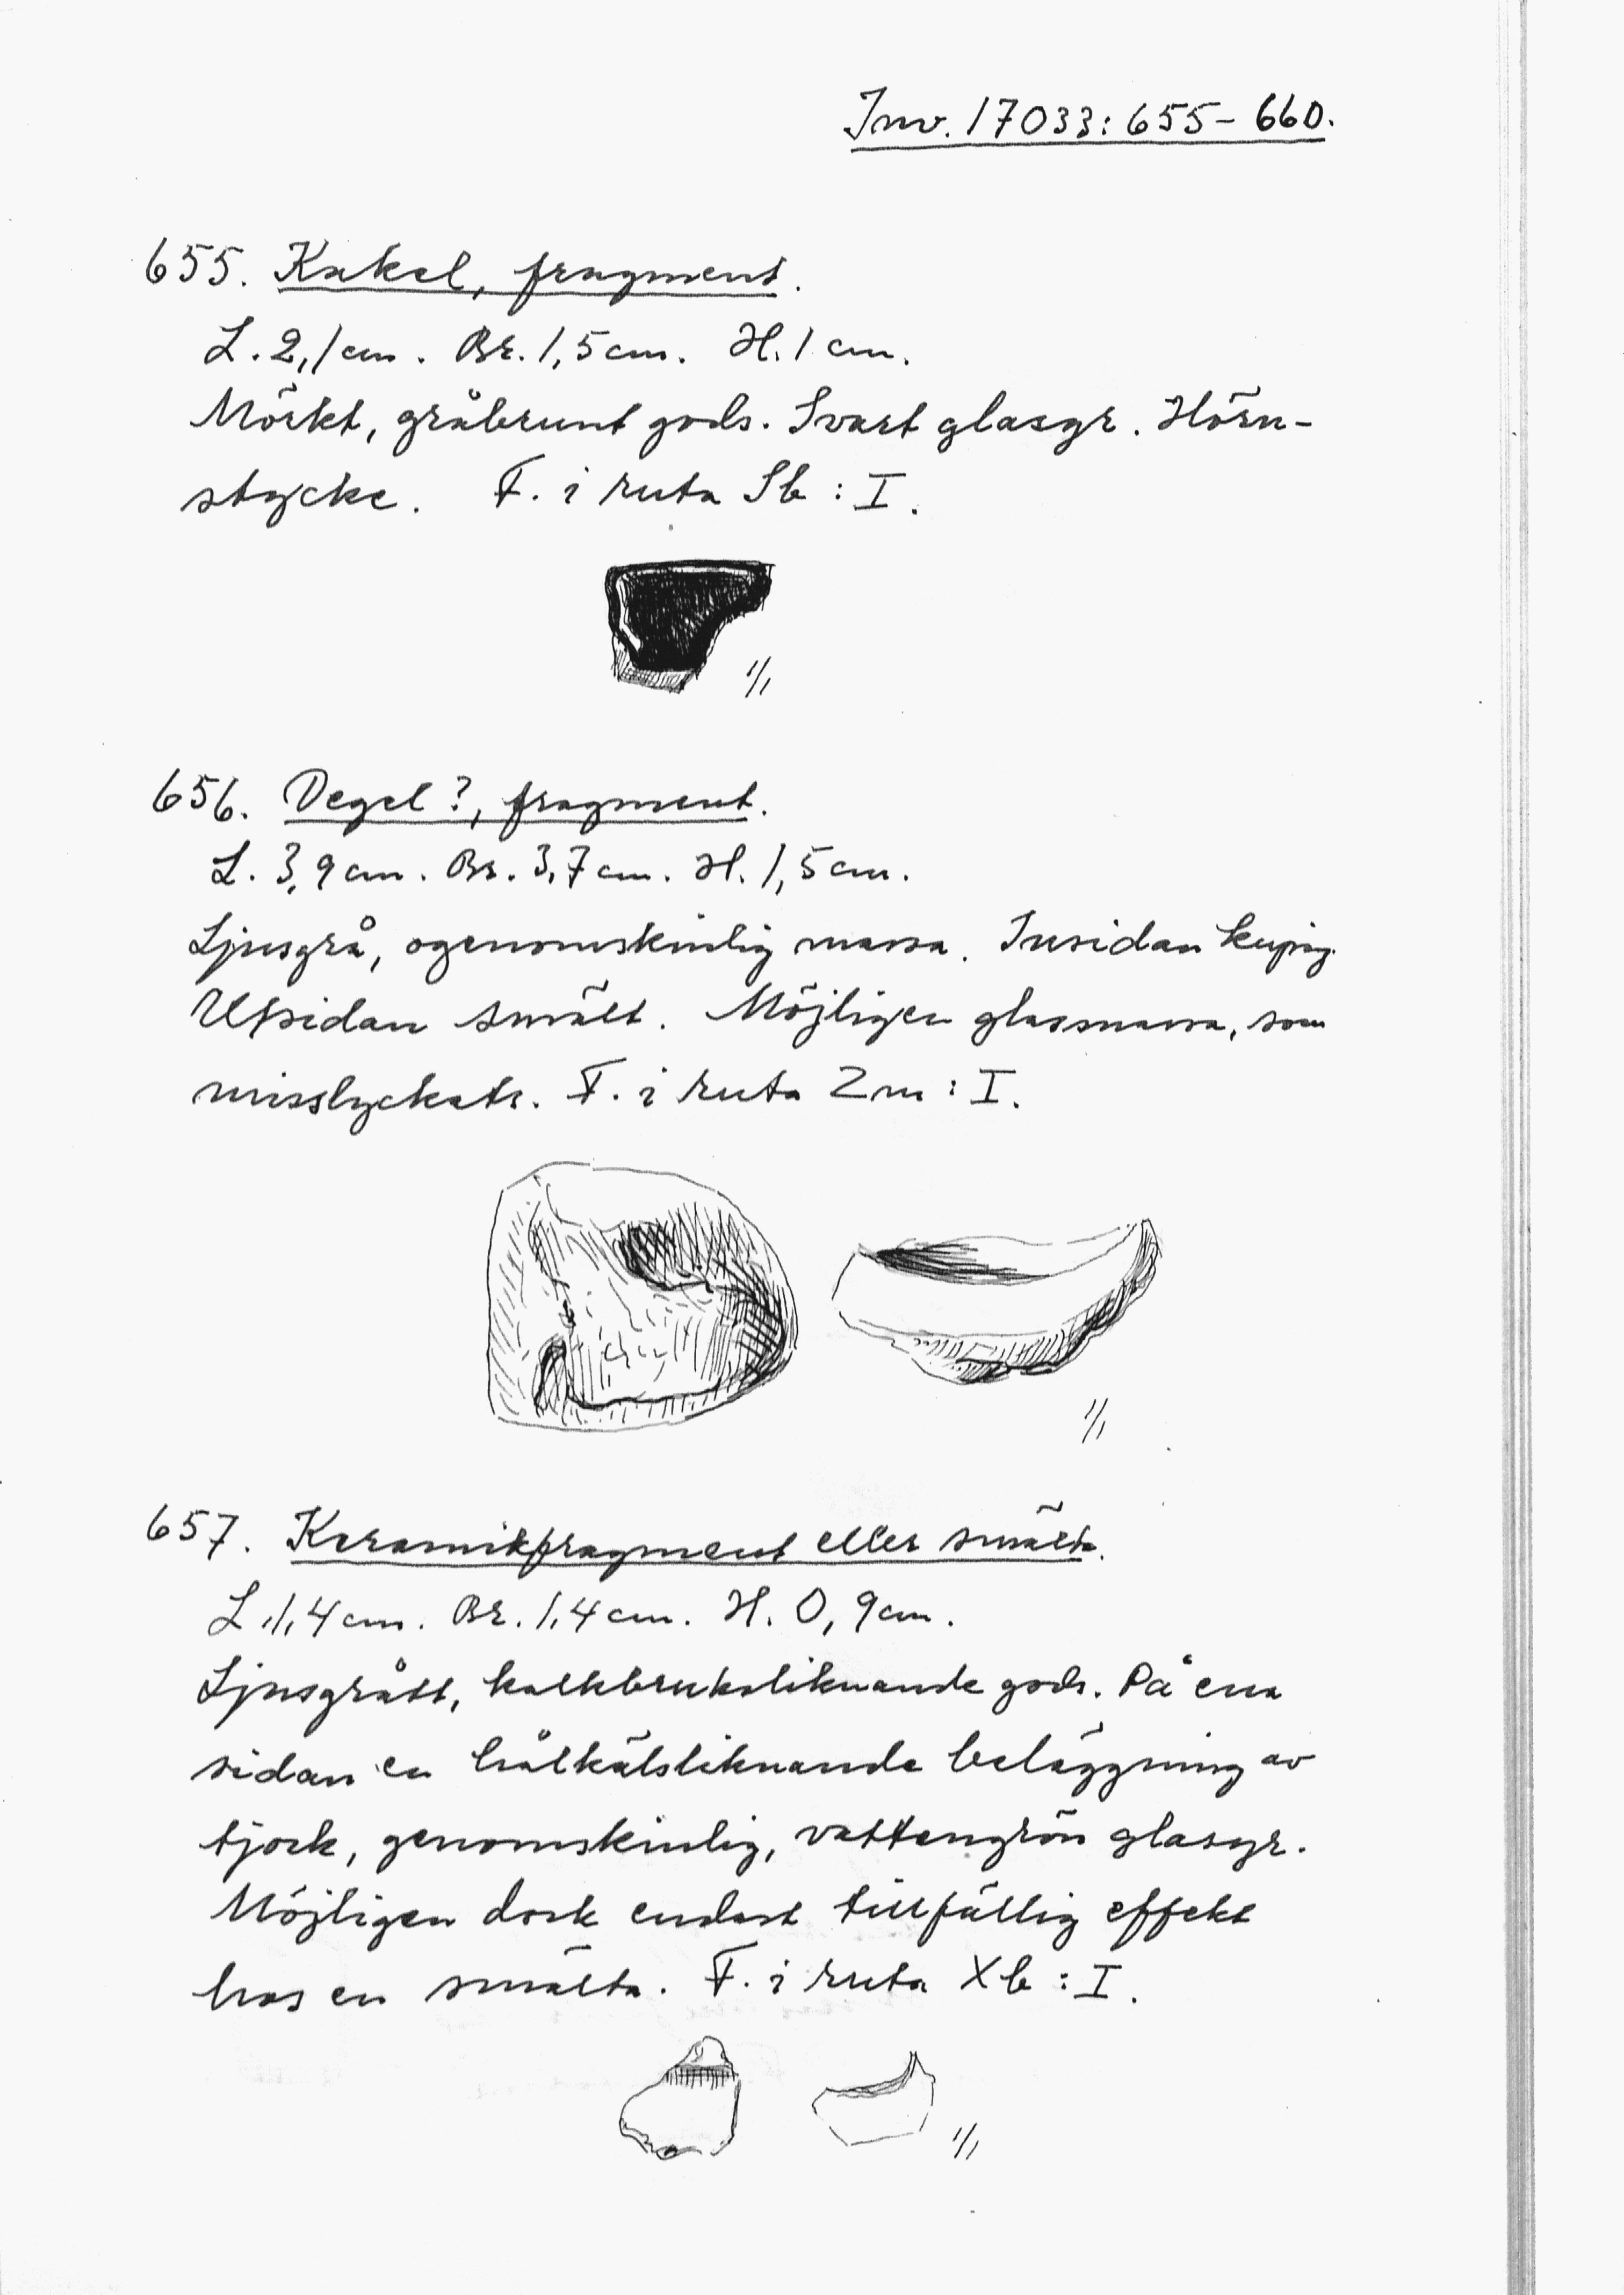 Inv. 17033:655-660.
655. Kakel, fragment.
L. 2,1 cm. Br. 1,5 cm. H. 1 cm.
Mörkt, gråbrunt gods. Svart glasyr. Hörn-
stycke. F. i ruta Sb : I.
1/1
656. Degel?, fragment.
L. 3,9 cm. Br. 3,7 cm. H. 1,5 cm.
Ljusgrå, ogenomskinlig massa. Insidan kupig.
Utsidan smält. Möjligen glasmassa, som
misslyckats. F. i ruta Zm : I.
1/1
657. Keramikfragment eller smälta.
L. 1,4 cm. Br. 1,4 cm. H. 0,9 cm.
Ljusgrått, kalkbruksliknande gods. På ena
sidan en hålkälsliknande beläggning av
tjock, genomskinlig, vattengrön glasyr.
Möjligen dock endast tillfällig effekt
hos en smälta. F. i ruta Xb : I.
1/1